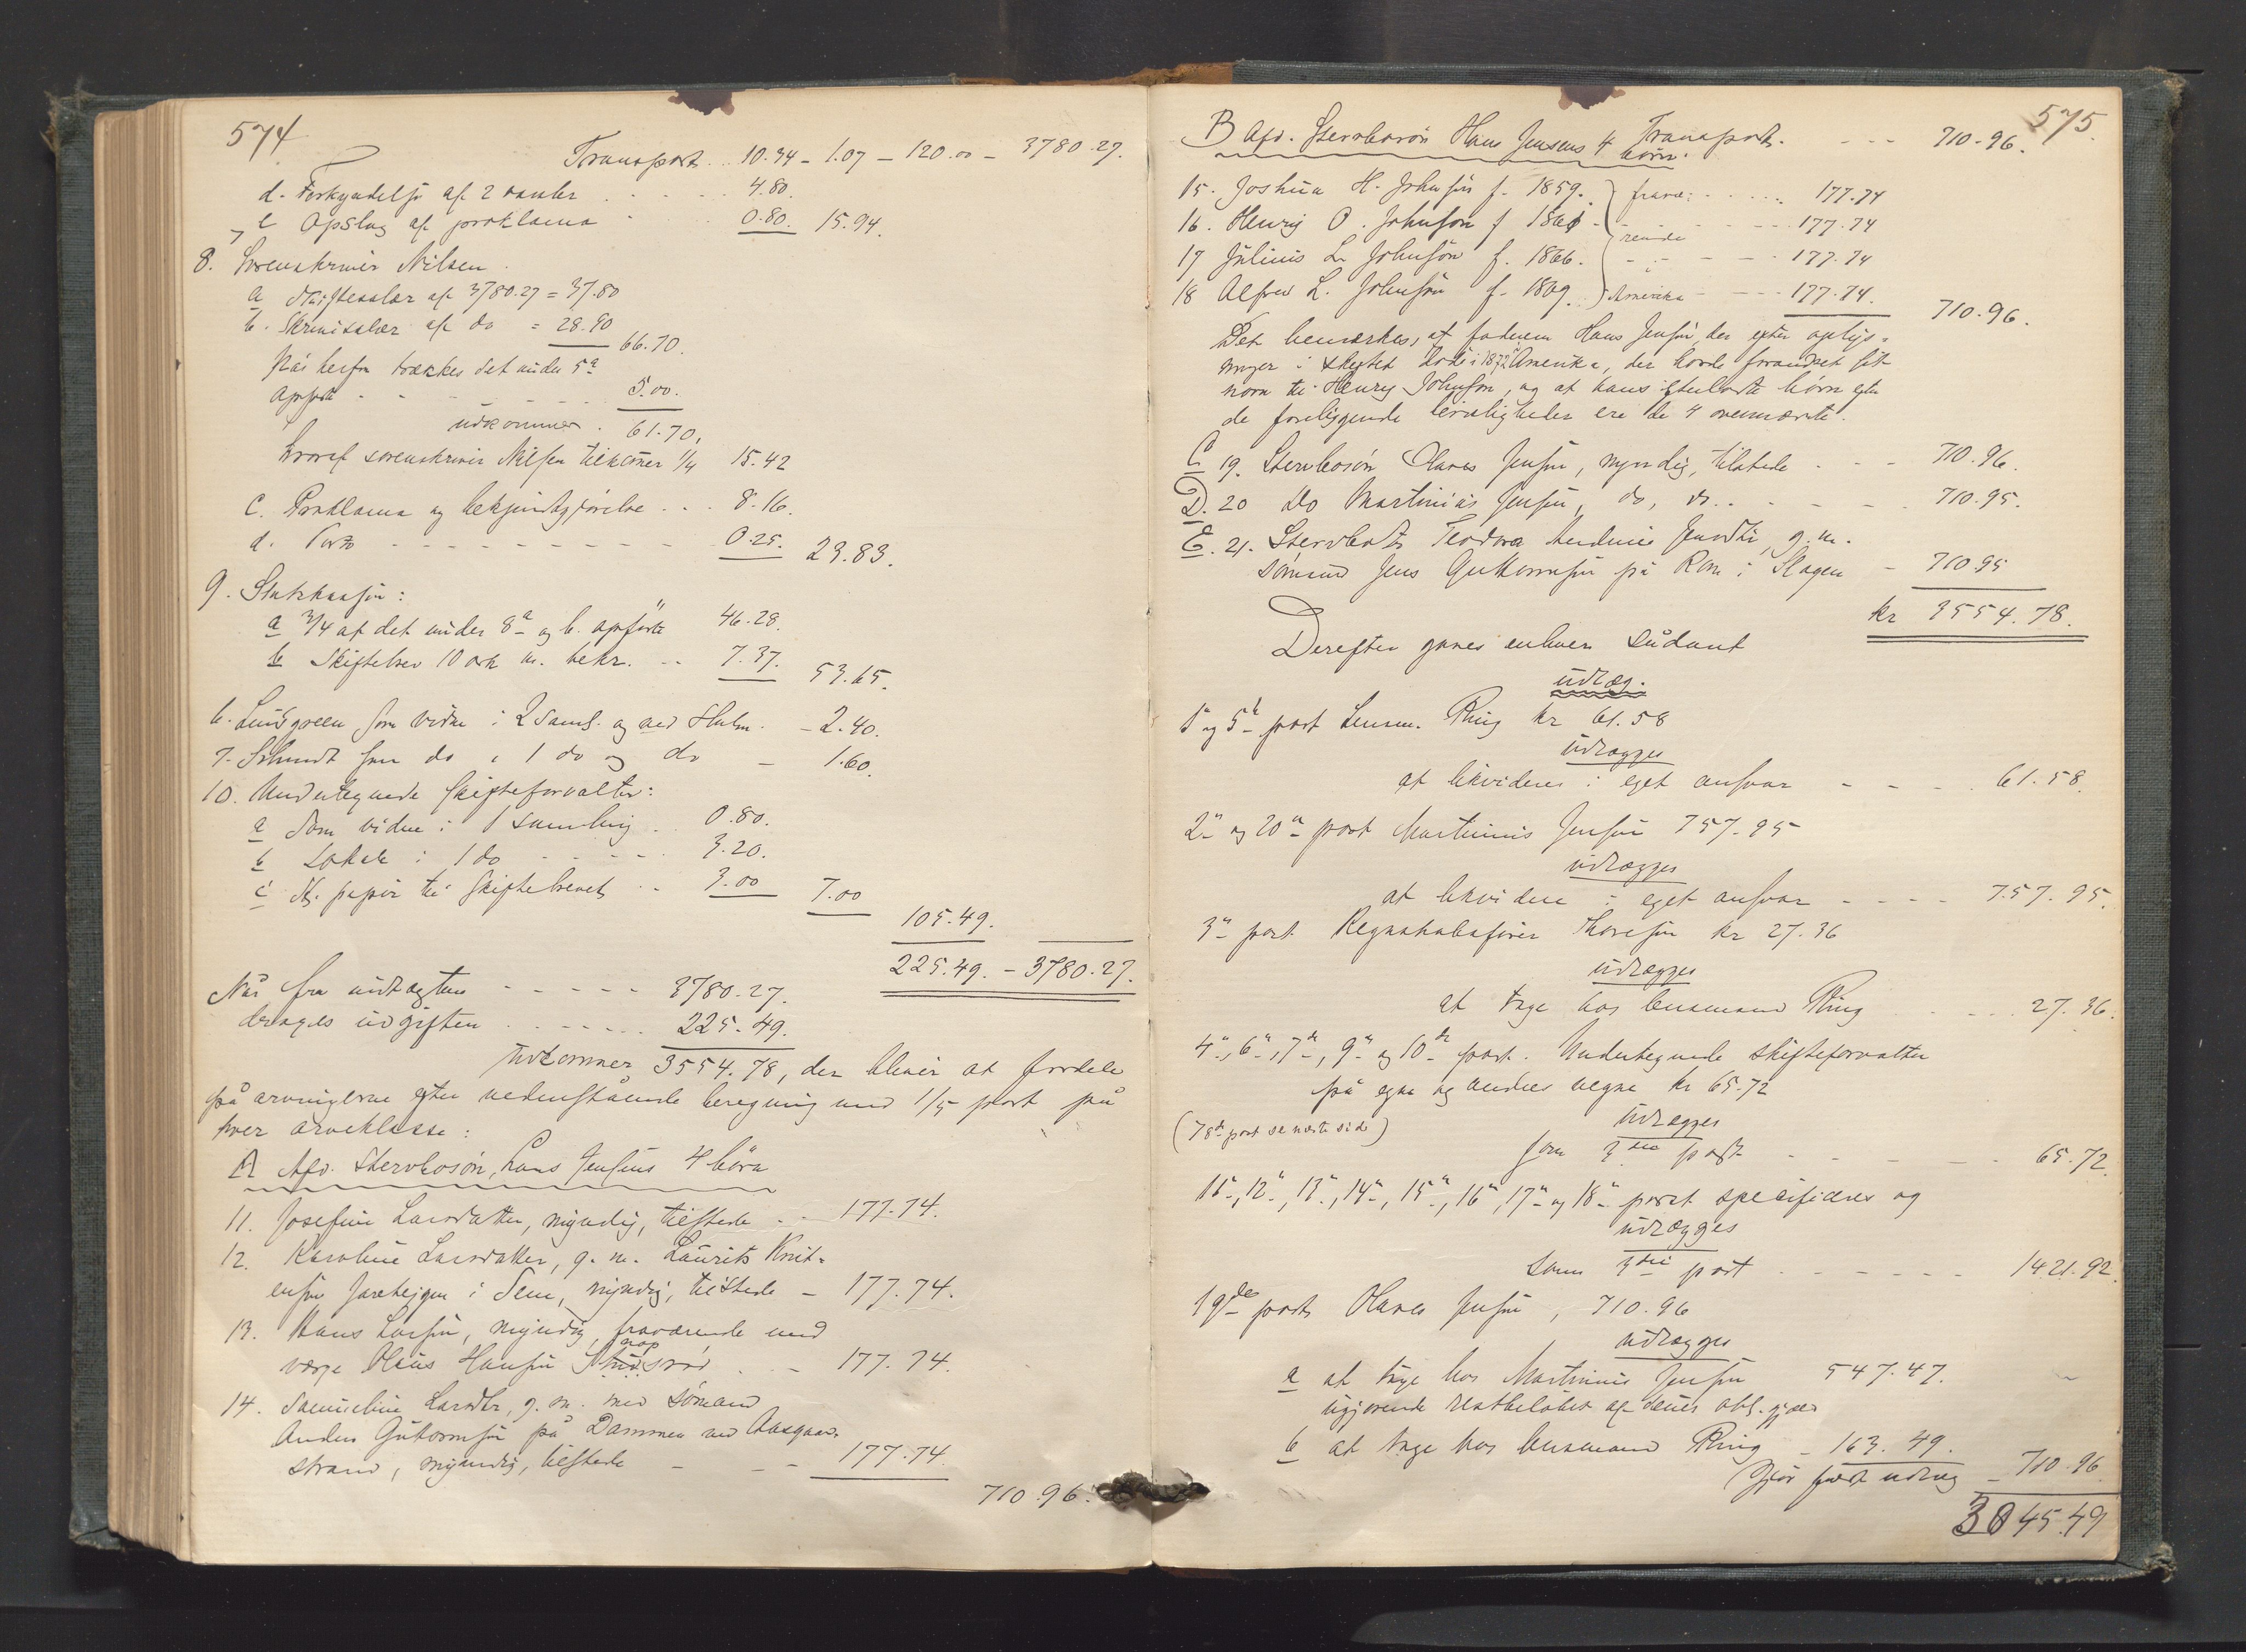 574
Transport 10.34 - 1.07 - 120.00 - 3780.27.
d. Forkyndelse af 2 4.80.
e Opslag af proklama 0.80. 15.94.
8. Sorenskriver Nilsen.
a Skiftesalær af 3780.27 = 37.80
b. Skriversalær af do = 28.90
66.70.
Når herfra trækkes det under 5a
opførte 5.00.
udkommer 61.70,
hvoraf sorenskriver Nilsen tilkommer 1/4 15.42
c. Proklama og bekjendtgjørelse 8.16.
d. Porto 0.25. 23.83.
9. Statskassen:
a 3/4 af det under 8a og b. opførte 46.28.
b Skiftebrev 10 ark m. bekr. 7.37. 53.65.
6. Lindgreen som vidne i 2 saml. og ved - 2.40.
7. Schmidt som do i 1 do og do - 1.60.
10. Undertegnede skifteforvalter:
a Som vidne i 1 samling 0.80.
b Lokale i 1 do 3.20.
c St. papir til skiftebrevet 3.00 7.00
105.49.
225.49. - 3780.27.
Når fra indtægten 3780.27.
drages udgiften 225.49.
udkommer 3554.78, der bliver at fordele
på arvingerne efter nedenstående beregning med 1/5 part på
hver arveklasse:
A Afd. sterbosøn, Lars Jensens 4 børn
11. Josefine Larsdatter, myndig, tilstede 177.74.
12. Karoline Larsdatter, g. m. Laurits Knut-
ensen i Sem, myndig, tilstede - 177.74.
13. Hans Larsen, myndig, fraværende med
værge Hans Hansen - 177.74.
14. Samueline Larsdtr, g. m. med sømand
Anders Guttormsen på Dammen ved Aasgaard-
strand, myndig, tilstede - 177.74.
710.96.
575.
B Afd. Stervbosøn Hans Jensens 4 børn. Transport. 710.96.
15. Joshua H. Johnson f. 1859. fravæ- 177.74
16. Henry O. Johnson f 1861 - 177.74
rende
17 Julius L. Johnson f. 1866. - 177.74
18 Alfred L. Johnson f. 1869. i Amerika 177.74.
710.96.
Det bemærkes, at faderen Hans Jensen, der efter oplys-
ninger i skiftet døde i 1872 i Amerika, der havde forandret sit
navn til Henry Johnson, og at hans efterladte børn efter
de foreliggende bevisligheder ere de 4 ovennævnte.
C 19. Stervbosøn Olaves Jensen, myndig, tilstede 710.96.
D. 20 Do Martinius Jensen, do, do. 710.95.
E. 21. Stervbodtr Teodora Andrine Jensdtr, g. m.
sømand Jens Guttormsen på Rom i Slagen - 710.95
kr 3554.78.
Derefter gaves enhver sådant
udlæg.
1 og 5te post Lensm. Ring kr 61.58
udlægges
at likvidere i eget ansvar 61.58.
2n og 20n post Martinius Jensen 757.95
udlægges
at likvidere i eget ansvar 757.95.
3n post Regnskabsfører Thoresen kr 27.36
udlægges
at tage hos lensmand Ring 27.36.
4n, 6n, 7de, 9n og 10de post. Undertegnede skifteforvalter
på egne og andres vegne kr 65.72
udlægges
(78de post se næste side)
som 3die post 65.72.
11n, 12n, 13n, 14n, 15n, 16n, 17n og 18n post specificeres og
udlægges
som 3die post 1421.92.
19de post Olaves Jensen, 710.96
udlægges
a at tage hos Martinius Jensen 547.47.
udgjørende restbeløbet af denes obl. gjæld
b at tage hos lensmand Ring - 163.49.
Gjør fuldt udlæg - 710.96
3045.49